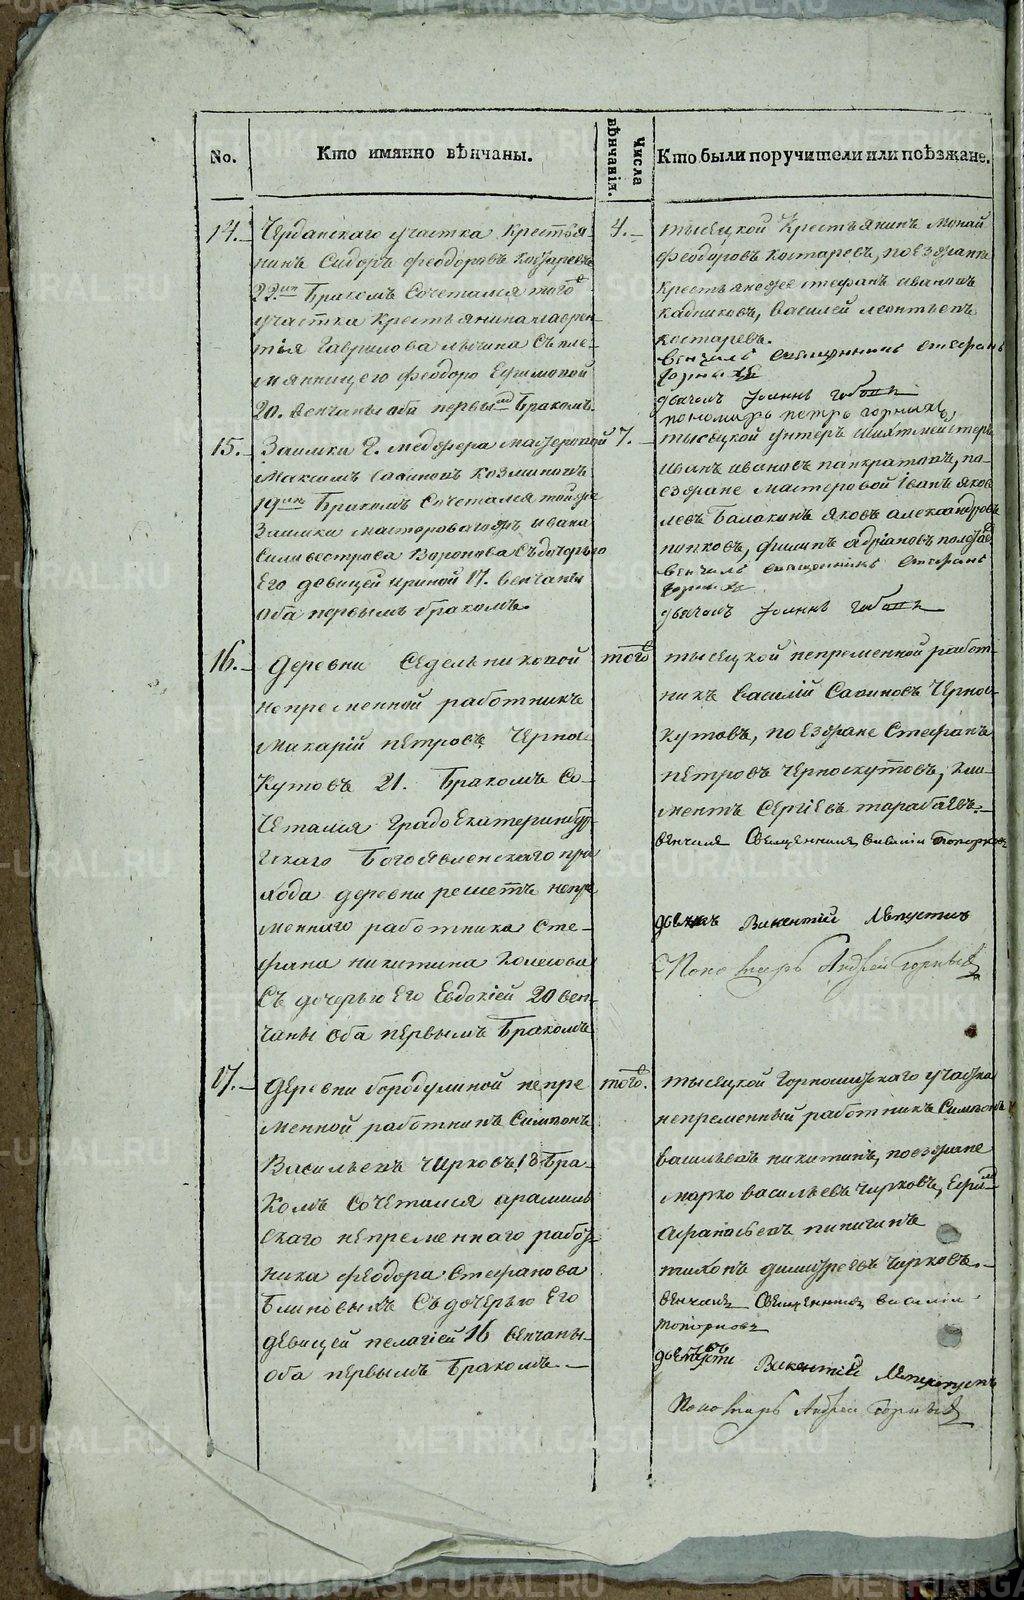 No.
Кто имянно вѣнчаны.
Числа вѣнчанія.
Кто были поручители или поѣзжане.
14.
участка крестья-
нинъ Сидоръ Феодоровъ Костаревъ
22 Бракомъ Сочетался того
участка Крестьянина Лаврен-
тія Гаврилова съ пле-
мянницею Феодоро Ефимовой
20. венчаны оба первы Бракомъ.
4.
тысецкой Крестьянинъ
Феодоровъ Костаревъ, поезжана
Крестьяне Стефанъ Ивановъ
Кадниковъ, Василей Леонтьевъ
Костаревъ.
Венчалъ священникъ Стефанъ
Горныхъ
дьячокъ Іоаннъ
пономарь Петръ Горныхъ
15.
Заимки Г. Меджера мастеровой
Максимъ Савиновъ Козминовъ
19 Бракомъ Сочетался той же
Заимки мастероваго Ивана
Силивестрова Воронова съ дочерью
Его девицей Ириной 17. венчаны
оба первымъ бракомъ.
7.
тысецкой унтеръ Шихтмейстеръ
Иванъ Ивановъ Панкратовъ, по-
езжане мастеровой Іванъ Яков
левъ Балакинъ Яковъ Александровъ
Попковъ, Филипъ Адріановъ
Венчалъ священникъ Стефанъ
Горныхъ
дьячокъ Іоаннъ
16.
Деревни Седельниковой
непременной работникъ
Макарій Петровъ Черно-
кутовъ 21. Бракомъ Со-
четался Градо Екатеринбур-
гскаго Богоявленскаго при
хода деревни Решетъ непре
меннаго работника Сте-
фана Никитина Колесова
Съ дочерью Его Евдокіей 20 вен-
чаны оба первымъ Бракомъ
того
тысецкой непременной работ-
никъ Василій Савиновъ Черно-
кутовъ, поезжане Стефанъ
Петровъ Черноскутовъ, Кли-
ментъ Сергіевъ Тарабаевъ.
венчалъ Священникъ Василій Топорковъ
дьячокъ Викентій Лепустинъ
Пономарь Андрей Горныхъ
17.
Деревни Бородулиной непре
менной работникъ Симионъ
Васильевъ Чирковъ 18 Бра-
комъ Сочетался арамиль
скаго непременнаго работ-
ника Феодора Стефанова
Блиновыхъ Съ дочерью Его
девицей Пелагіей 16 венчаны
оба первымъ Бракомъ.
того.
тысецкой Горнощитскаго участка
непременный работникъ Симионъ
Васильевъ Никитинъ, поезжане
Марко Васильевъ Чирковъ, Ефимъ
Афанасьевъ Пиничинъ
Тихонъ Димитреевъ Чирковъ.
венчалъ Священникъ Василій
Топорковъ
Викентій
Пономарь Андрей Горныхъ